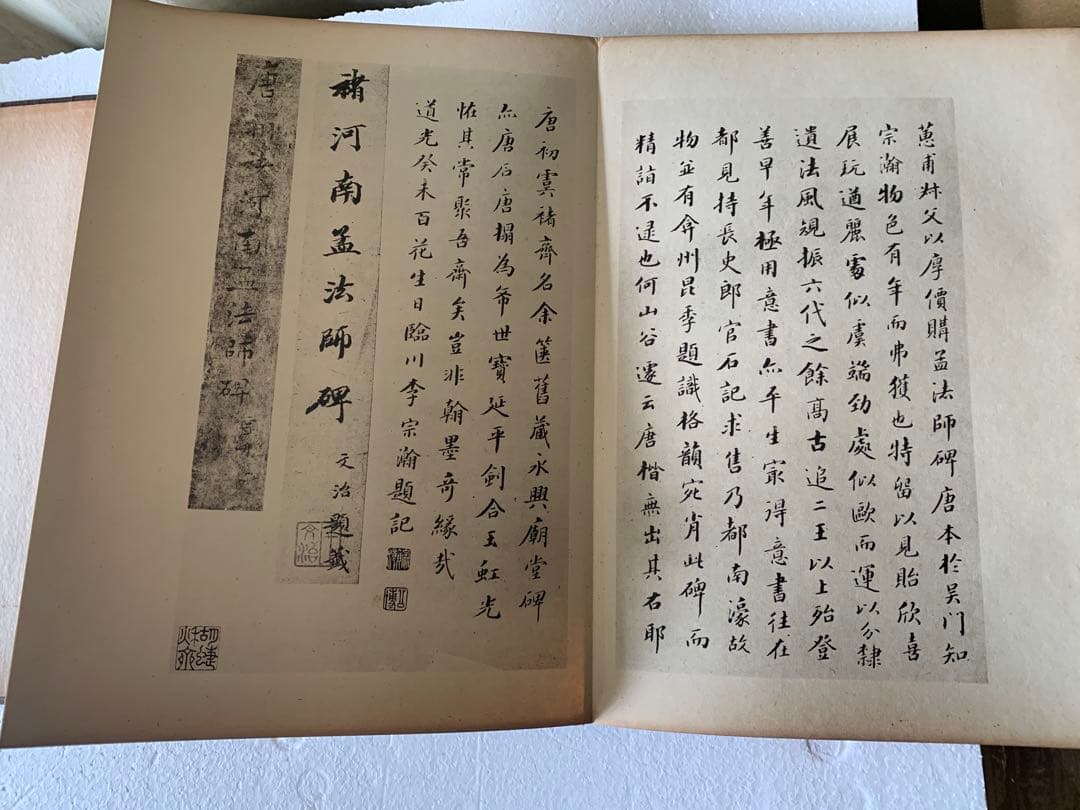 蕙甫叔父以厚價購孟法師碑唐本於吳門知
宗瀚物色有年而弗獲也特留以見貽欣喜
展玩遒麗處似虞端勁處似歐而運以分隸
遺法風規振六代之餘高古追二王以上殆登
善早年極用意書亦平生冣得意書往在
都見持長史郎官石記求售乃都南濠故
物並有弇州昆季題識格韻宛肖此碑而
精詣不逮也何山谷遽云唐楷無出其右耶
唐初虞褚齊名余篋舊藏永興廟堂碑
亦唐石唐搨為希世寶延平劍合玉虹光
恠其常聚吾齋矣豈非翰墨奇緣哉
道光癸未百花生日臨川李宗瀚題記
褚河南孟法師碑
文治題籤
文治
唐河南孟法師碑